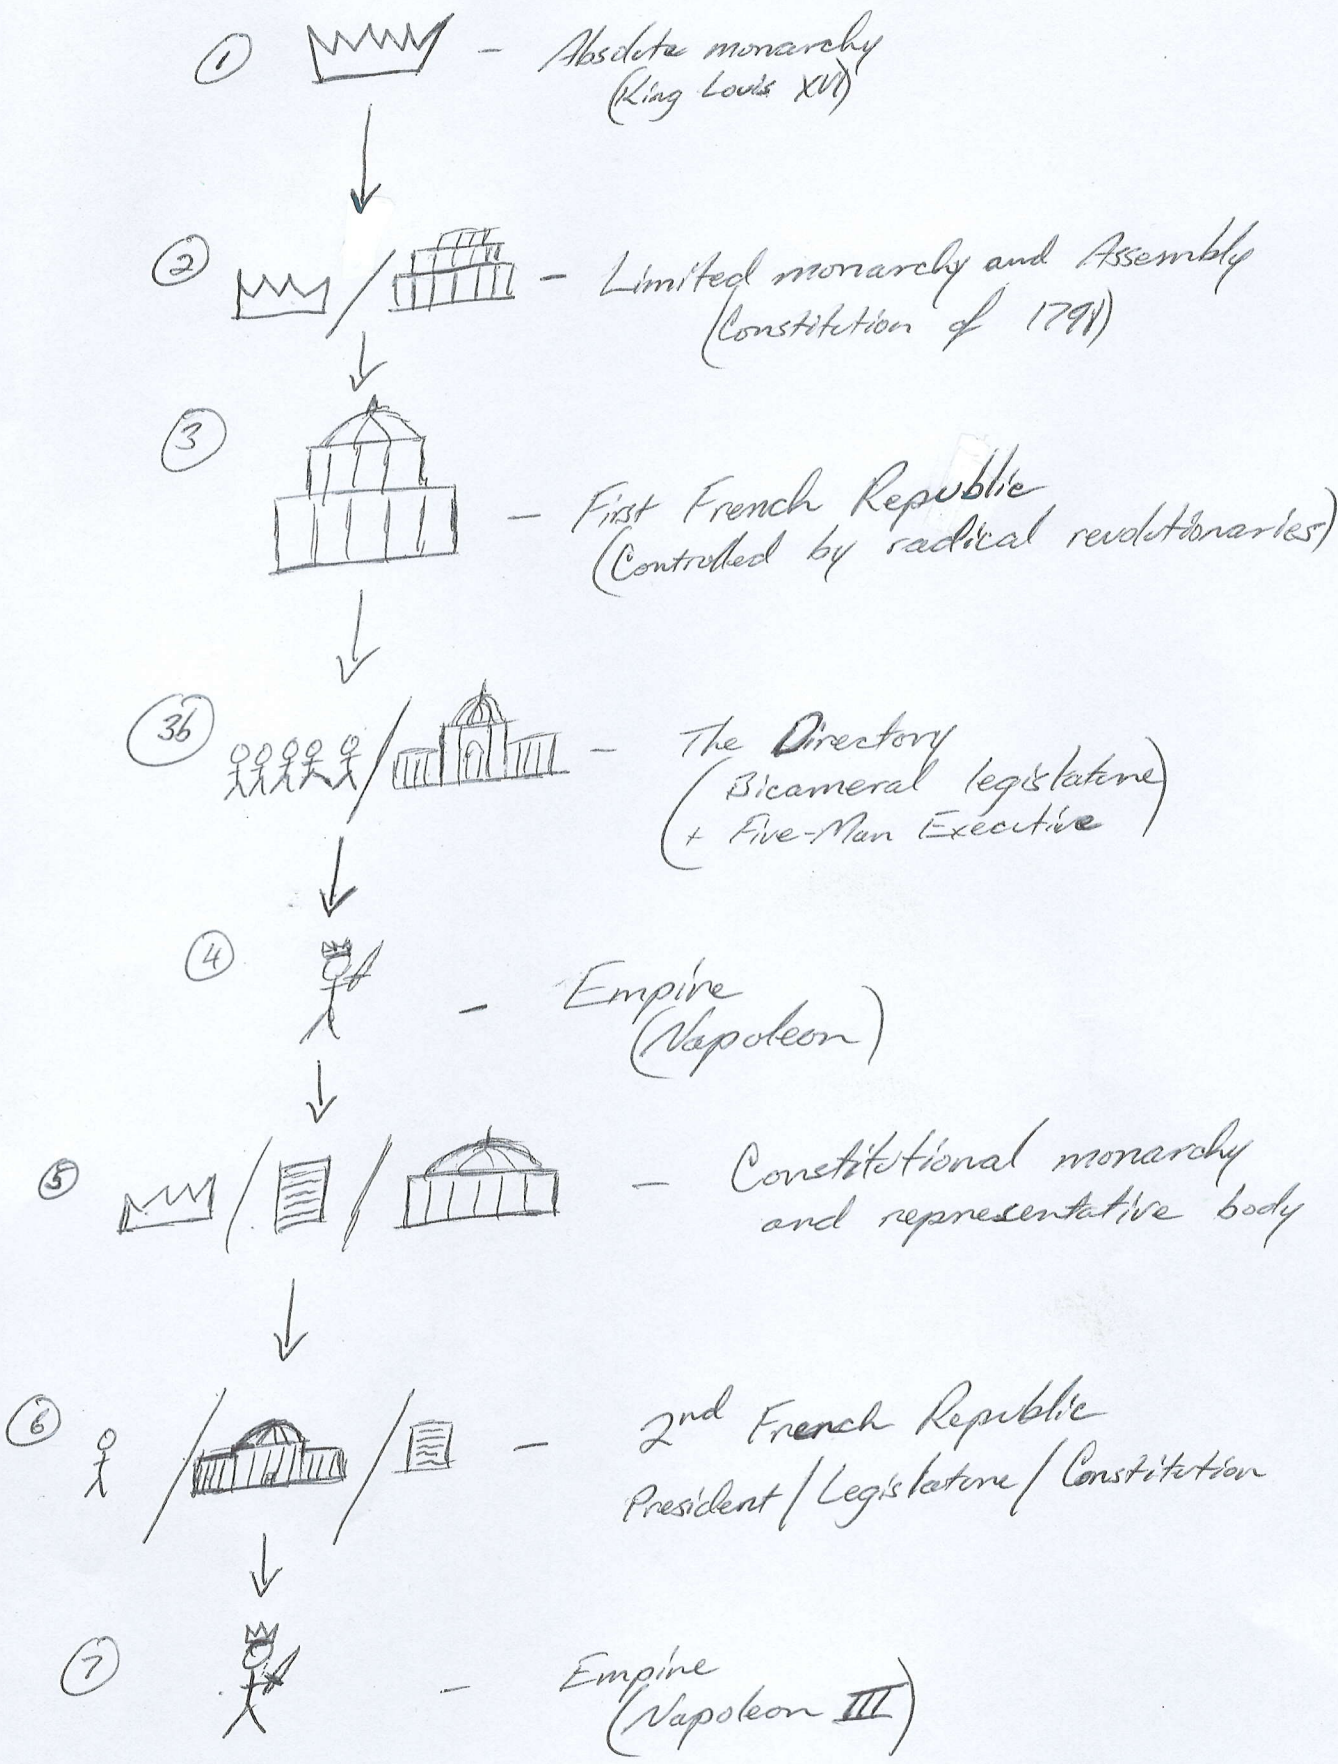 ① - Absolute monarchy
(King Louis XVI)
② - Limited monarchy and Assembly
(Constitution of 1791)
③ - First French Republic
(Controlled by radical revolutionaries)
3b - The Directory
(Bicameral legislature
+ Five-Man Executive)
④ - Empire
(Napoleon)
⑤ - Constitutional monarchy
and representative body
⑥ - 2nd French Republic
President / Legislature / Constitution
⑦ - Empire
(Napoleon III)